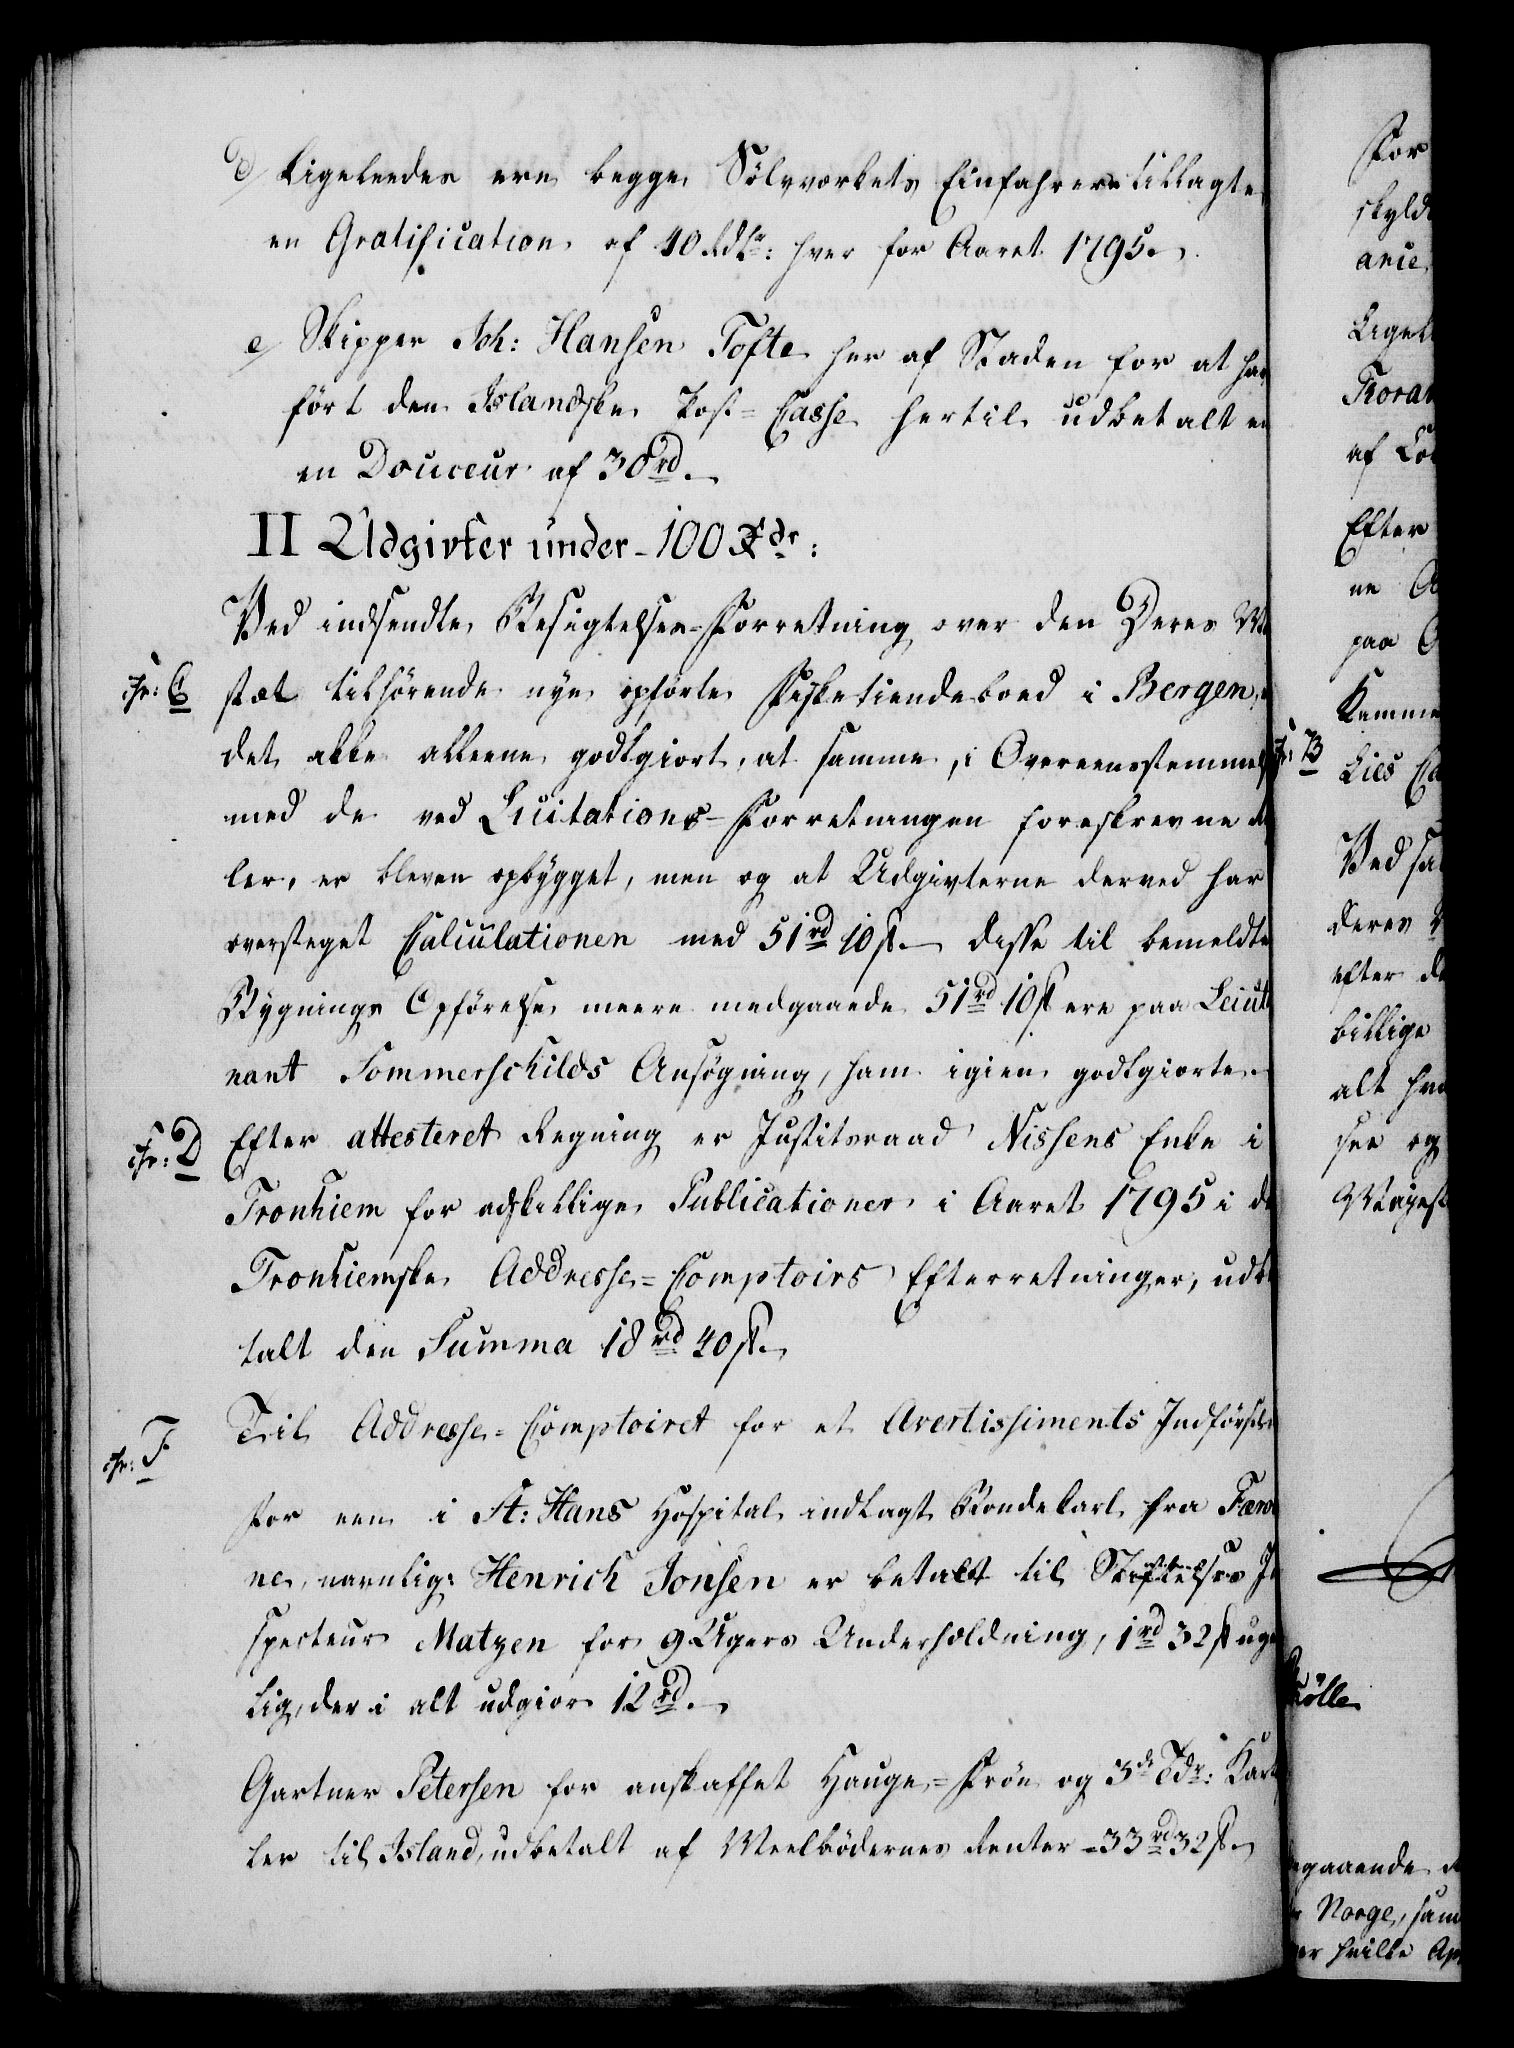 d/ Ligeleedes ere begge Sölvværkets Einfahrere tillagte
en Gratification af 40 Rdlr: hver for Aaret 1795.
e/ Skipper Joh: Hansen Tofte her af Staden for at hav
fört den Islandske Post-Casse hertil udbetalt
en Douceur af 30 rd.
II Udgivter under 100 Rdr:
Ved indsendte Besigtelses-Forretning over den Deres Ma
No: C stæt tilhörende nye opförte Fisketiendeboed i Bergen,
det alle alleene godtgiort, at samme, i Overeensstemmels
med de ved Licitations-Forretningen foreskrevne
ler, er bleven opbygget, men og at Udgivterne derved har
oversteget Calculationen med 51 rd 10 ß. disse til bemeldte
Bygnings Opförelse meere medgaaede 51 rd 10 ß ere paa Leiut
nant Sommerschilds Ansögning, ham igien godtgiorte.
No: D Efter attesteret Regning er Justitsraad Nissens Enke i
Tronhiem for adskillige Publicationer i Aaret 1795 i de
Tronhiemske Addresse-Comptoirs Efterretninger, udbe
talt den Summa 18 rd 40 ß.
No: F Til Addresse-Comptoiret for et Avertissiments Indförsel
for een i St: Hans Hospital indlagt Bondekarl fra Færö
ne, navnlig: Henrich Jonsen er betalt til Stiftelsens In
specteur Matzen for 9 Ugers Underholdning, 1 rd 32 ß uge
lig, der i alt udgiör 12 rd.
Gartner Petersen for anskaffet Hauge-Fröe og 3 de Tdr: Kart
ler til Island, udbetalt af Meelbödernes Renter - 33 rd 32 ß.
For
skyld
ance
Ligel
af
Efter
ne
paa
Kamme
No: B
Lies
Ved
deres
efter
billige
alt
see og
Mayest
gaaende
Norge, sam
er hvilke